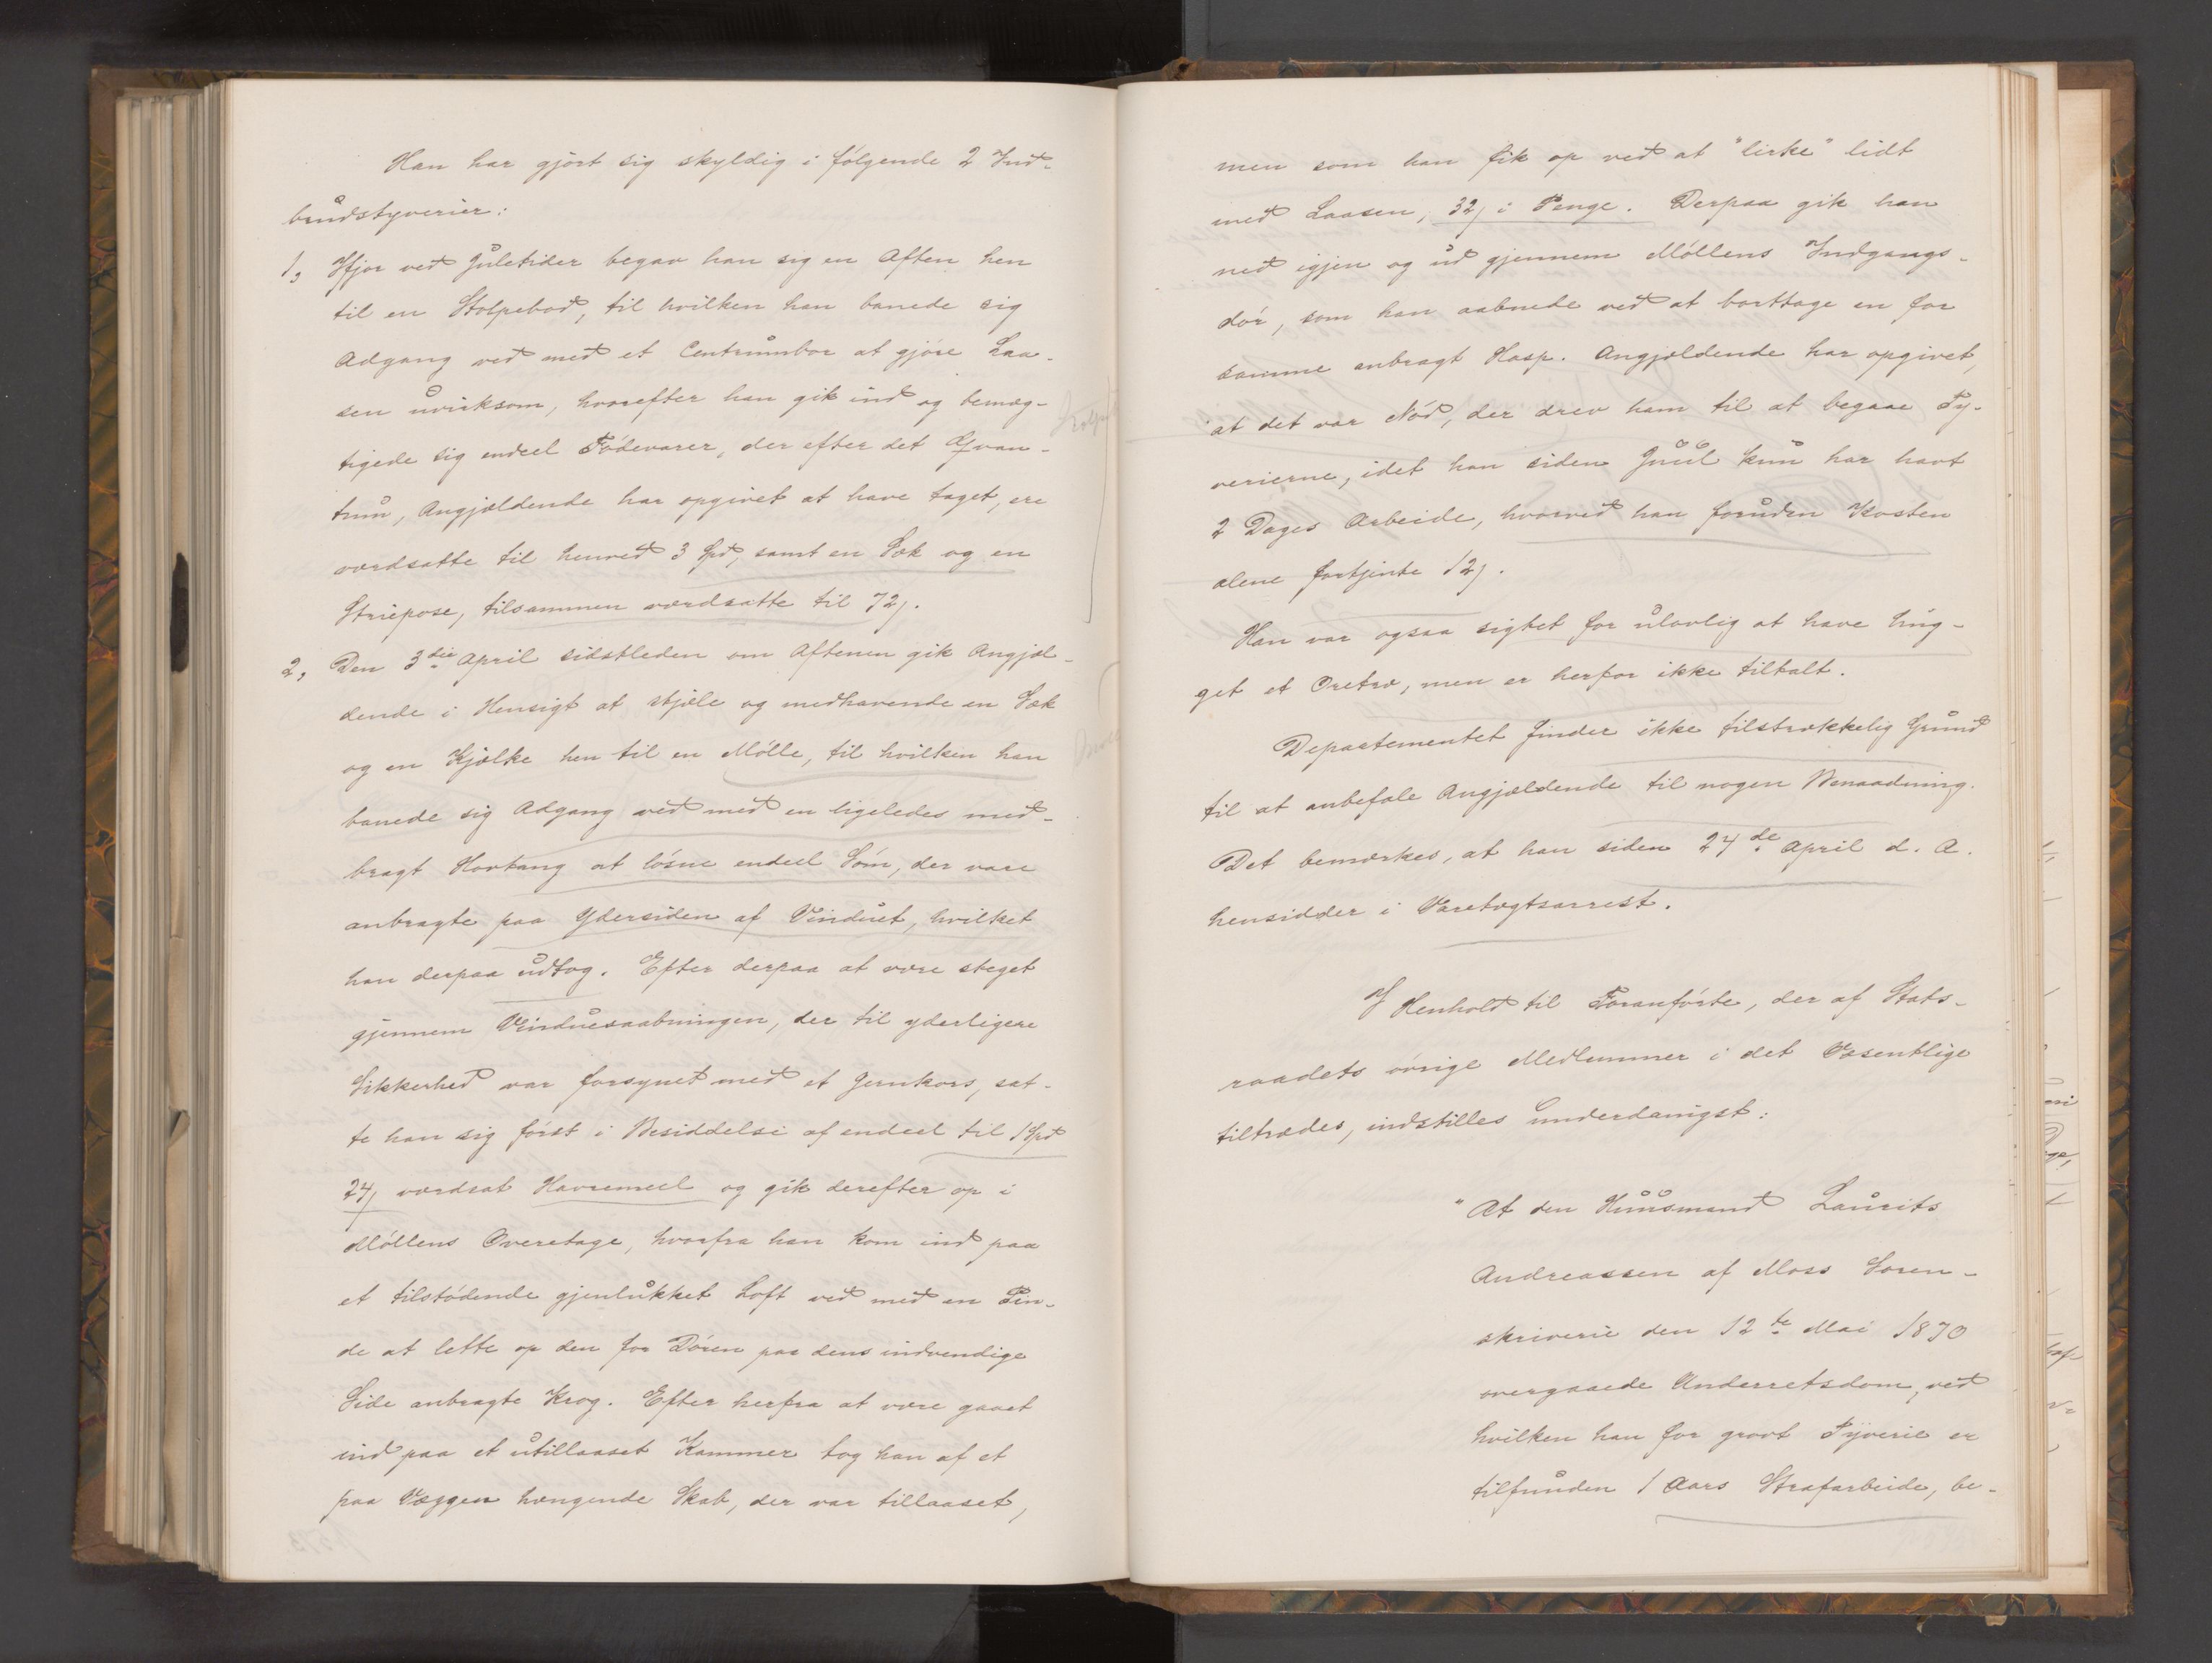 Han har gjört sig skyldig i fölgende 2 Ind-
brudstyverier:
1, Ifjor ved Juletider begav han sig en Aften hen
til en Stolpebod, til hvilken han banede sig
Adgang ved med et Centrumbor at gjöre Laa-
sen uvirksom, hvorefter han gik ind og bemæg-
tigede sig endeel Födevarer, der efter det Qvan-
tum, Angjældende har opgivet at have taget, ere
værdsatte til henved 3 Spd, samt en Sæk og en
Striepose, tilsammen værdsatte til 72ʃ.
2, Den 3die April sidstleden om Aftenen gik Angjæl-
dende i Hensigt at stjæle og medhavende en Sæk
og en Kjælke hen til en Mölle, til hvilken han
banede sig Adgang ved med en ligeledes med-
bragt Hovtang at lösne endeel Söm, der vare
anbragte paa Ydersiden af Vinduet, hvilket
han derpaa udtog. Efter derpaa at være steget
gjennem Vinduesaabningen, der til yderligere
Sikkerhed var forsynet med et Jernkors, sat-
te han sig först i Besiddelse af endeel til 1 Spd
24ʃ værdsat Havremeel og gik derefter op i
Möllens Overetage, hvorfra han kom ind paa
et tilstödende gjenlukket Loft ved med en Pin-
de at lette op den for Dören paa dens indvendige
Side anbragte Krog. Efter herfra at være gaaet
ind paa et utillaaset Kammer tog han af et
paa Væggen hængende Skab, der var tillaaset,
men som han fik op ved at "lirke" lidt
med Laasen, 32ʃ i Penge. Derpaa gik han
ned igjen og ud gjennem Möllens Indgangs-
dör, som han aabnede ved at borttage en for
samme anbragt Hasp. Angjældende har opgivet,
at det var Nöd, der drev ham til at begaae Ty-
verierne, idet han siden Juul kun har havt
2 Dages Arbeide, hvorved han foruden Kosten
alene fortjente 12ʃ.
Han var ogsaa sigtet for ulovlig at have hug-
get et Oretræ, men er herfor ikke tiltalt.
Departementet finder ikke tilstrækkelig Grund
til at anbefale Angjældende til nogen Benaadning.
Det bemærkes, at han siden 24de April d. A.
hensidder i Varetægtsarrest.
I Henhold til Foranförte, der af Stats-
raadets övrige Medlemmer i det Væsentlige
tiltrædes, indstilles underdanigst:
"At den Huusmand Laurits
Andreassen af Moss Soren-
skriverie den 12te Mai 1870
overgaaede Underretsdom, ved
hvilken han for grovt Tyverie er
tilfunden 1 Aars Strafarbeide, be-